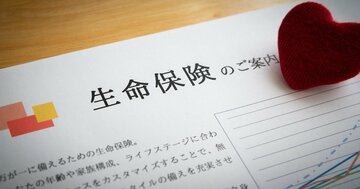 生命保険のご案内
万が一に備えるための生命保険。
なたの年齢や家族構成、ライフステージに合わ
ースをカスタマイズすることで、無
タイルの備えを充実させ
身